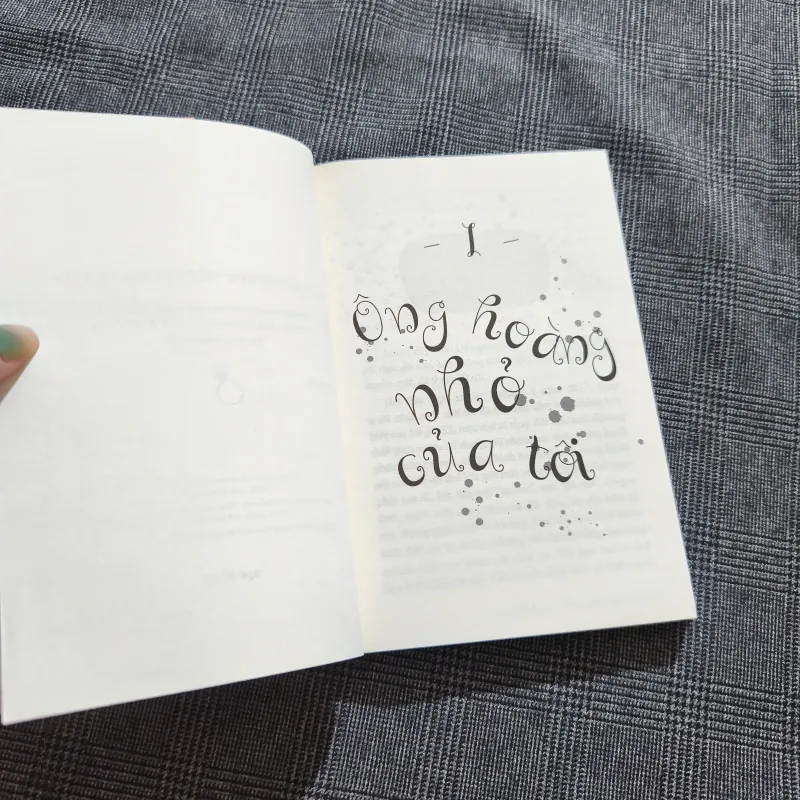 - I -
Ông hoàng
nhỏ
của tôi